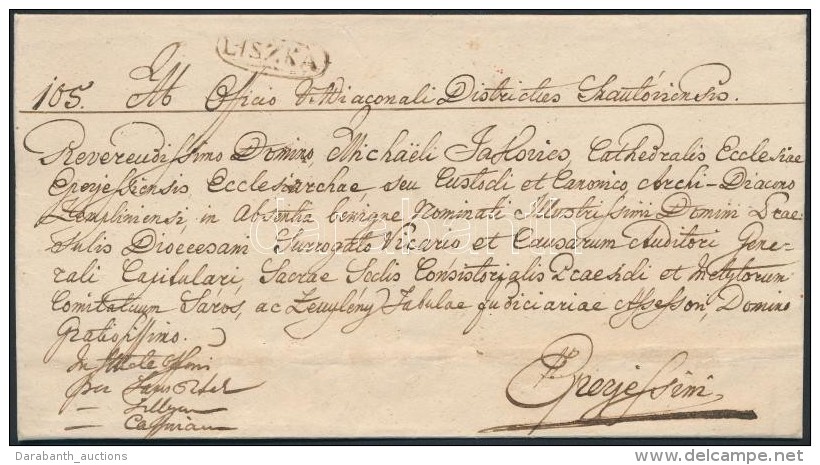 LISZKA
105. Ab Officio V. Diaconali Districtus
Reverendissimo Domino, Michaëli Cathedralis Ecclesiae
Eperjessiensis Ecclesiarchae, seu Custodi et Canonico, Archi-Diacono
Zempliniensi, in Absentia benigne Nominati Illustrissimi Domini Prae-
sulis Dioecesani Surrogato Vicario et Causarum Auditori Gene-
rali Capitulari, Sacrae Sedis Consistorialis Praesidi et Inclytorum
Comitatuum Saros, ac Zempleny Tabulae Judiciariae Assessori, Domino
Gratiosissimo.
per
Eperjessini
darabanth
Darabanth_auctions
© www.delcampe.net